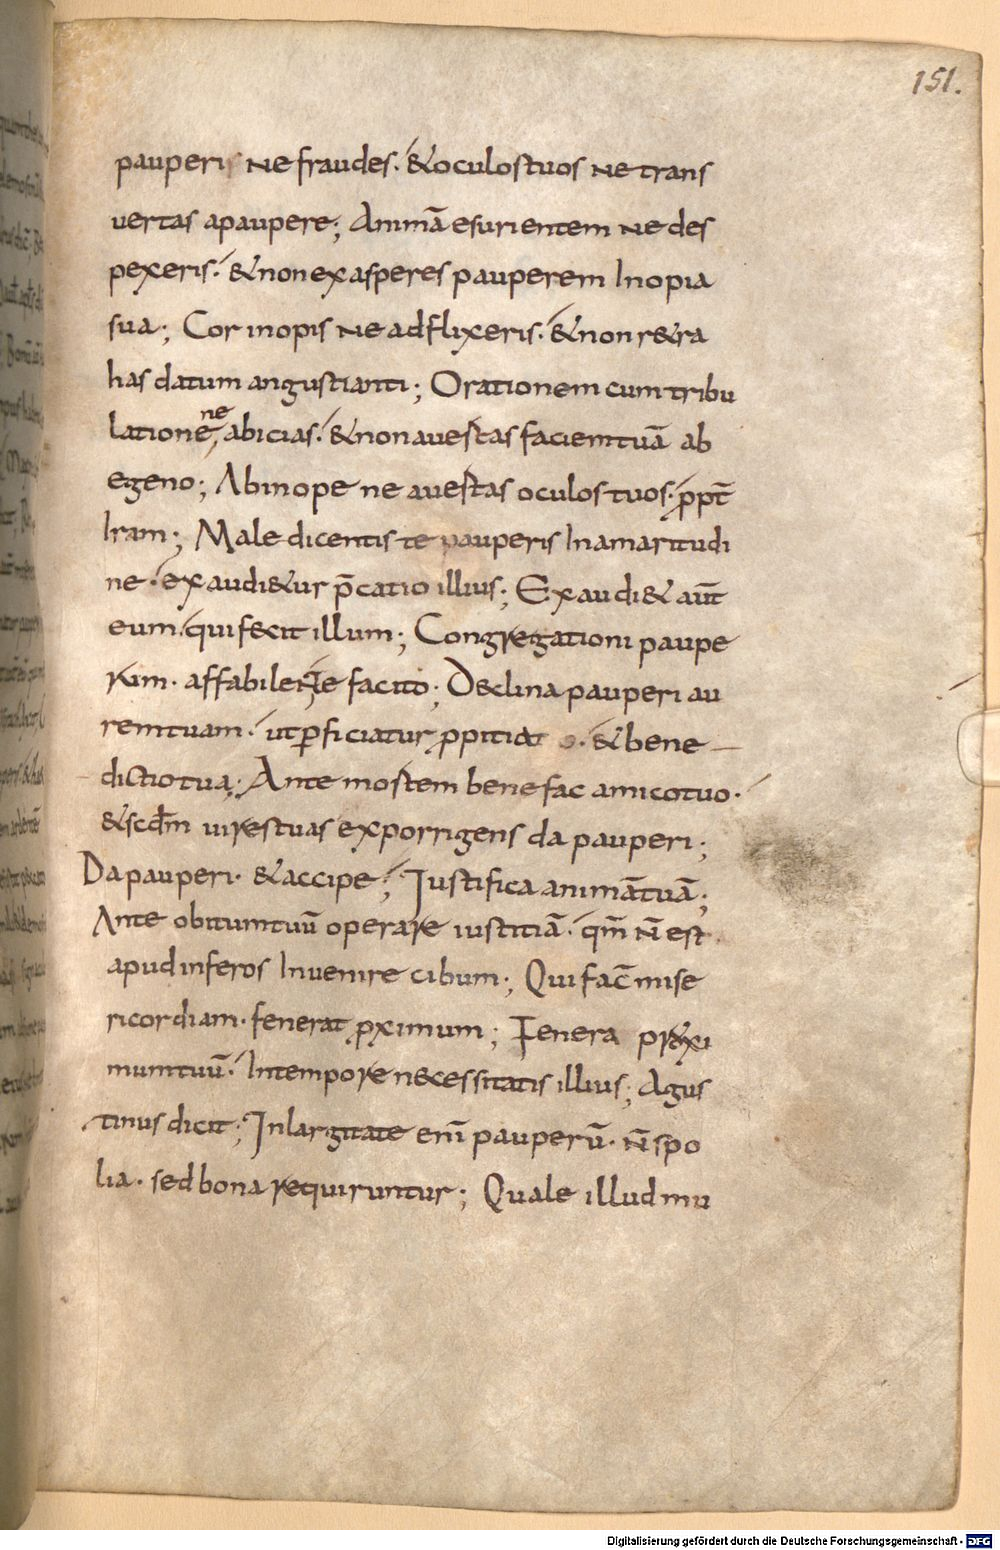 151.
pauperis ne fraudes. & oculos tuos ne trans
uertas a paupere; Animā esurientem ne des
pexeris. & non exasperes pauperem In opia
sua; Cor inopis ne adflixeris. & non r&ra
has datum angustianti; Orationem cum tribu
latione ne abicias. & non auestas faciem tuā ab
egeno; Ab inope ne auestas oculos tuos. ꝓpt̄
Iram; Male dicentis te pauperis In amaritudi
ne. exaudi&ur p̄catio illius; Exaudi& aut̄
eum. qui fecit illum; Congregationi paupe
rum. affabile te facito; Declina pauperi au
rem tuam. ut ꝑficiatur ꝓpitiat o. & bene
dictio tua; Ante mostem bene fac amico tuo.
& scd̄m uires tuas exporrigens da pauperi;
Da pauperi. & accipe; Iustifica animā tuā;
Ante obitum tuū operare iustitiā. qm̄ n̄ est
apud inferos Inuenire cibum; Qui fac̄ mise
ricordiam. fenerat ꝓximum; Fenera proxi
mum tuū. In tempore necessitatis illius; Agus
tinus dicit; In largitate eni pauperū. n̄ spo
lia. sed bona requiruntur; Quale illud mu
Digitalisierung gefördert durch die Deutsche Forschungsgemeinschaft - DFG